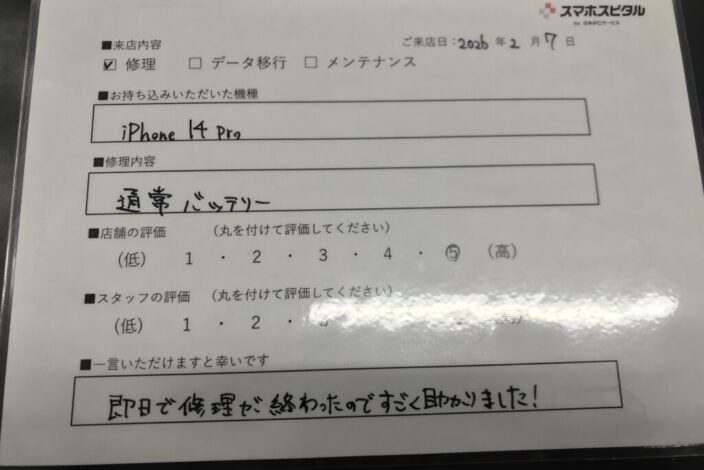 スマホスピタル
by 日本PCサービス
■来店内容 ご来店日：2026 年 2 月 7 日
☑ 修理 □ データ移行 □ メンテナンス
■お持ち込みいただいた機種
iPhone 14 Pro
■修理内容
通常バッテリー
■店舗の評価 （丸を付けて評価してください）
（低） 1 ・ 2 ・ 3 ・ 4 ・ ⑤ （高）
■スタッフの評価 （丸を付けて評価してください）
（低） 1 ・ 2 ・
■一言いただけますと幸いです
即日で修理が終わったのですごく助かりました！